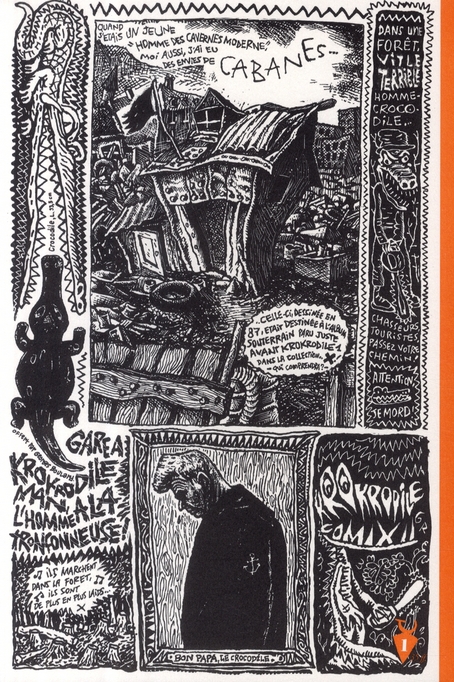 QUAND
J'ÉTAIS UN JEUNE
"HOMME DES CAVERNES MODERNE",
MOI AUSSI, J'AI EU
DES ENVIES DE
CABANES...
Crocodile,
...CELLE-CI DESSINÉE EN
87, ÉTAIT DESTINÉE À L'ALBUM
SOUTERRAIN PARU JUSTE
AVANT KROKRODILE 1
DANS LA COLLECTION X
- QUI COMPRENDRA?-
DANS UNE
FORÊT,
VIT LE
TERRIBLE
HOMME-
CROCO-
DILE..
CHASSEURS,
TOURISTES,
PASSEZ VOTRE
CHEMIN!
ATTENTION
JE MORD!
GARE A:
KROKRODILE
MAN, A LA
L'HOMME
TRONÇONNEUSE!
♫ ILS MARCHENT
DANS LA FORET, ♫
♪ ILS SONT
DE PLUS EN PLUS LAIDS..
BON PAPA, LE CROCODÈLE
KROKRODILE
COMIX II
1